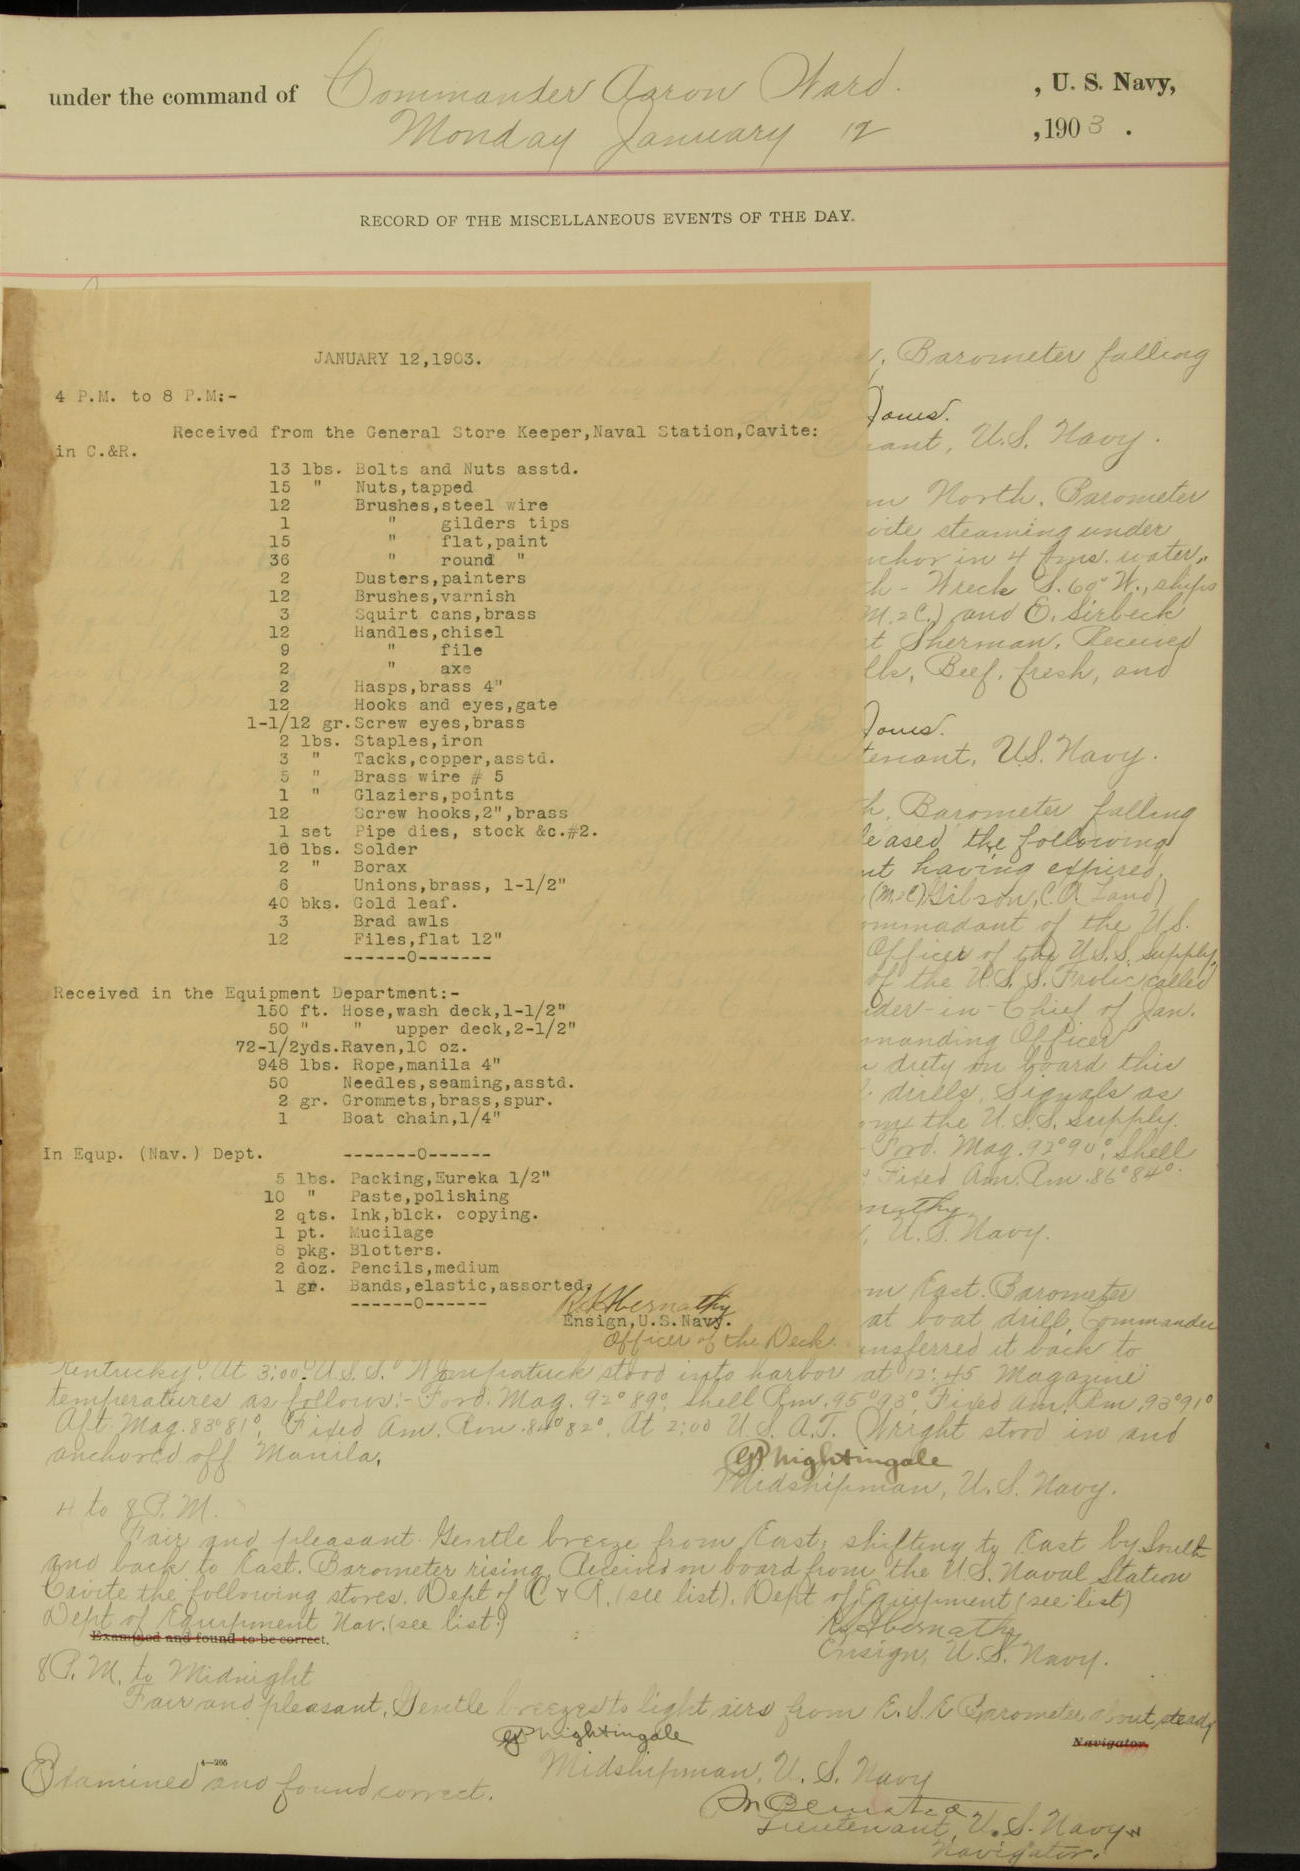 under the command of Commander Aaron Ward. , U. S. Navy,
Monday January 12 , 1903.
RECORD OF THE MISCELLANEOUS EVENTS OF THE DAY.
JANUARY 12,1903.
4 P.M. to 8 P.M:-
Received from the General Store Keeper,Naval Station,Cavite:
in C.&R.
13 lbs. Bolts and Nuts asstd.
15 " Nuts,tapped
12 Brushes,steel wire
1 " gilders tips
15 " flat,paint
36 " round "
2 Dusters,painters
12 Brushes,varnish
3 Squirt cans,brass
12 Handles,chisel
9 " file
2 " axe
2 Hasps,brass 4"
12 Hooks and eyes,gate
1-1/12 gr. Screw eyes,brass
2 lbs. Staples,iron
3 " Tacks,copper,asstd.
5 " Brass wire # 5
1 " Glaziers,points
12 Screw hooks,2",brass
1 set Pipe dies, stock &c.#2.
10 lbs. Solder
2 " Borax
6 Unions,brass, 1-1/2"
40 bks. Gold leaf.
3 Brad awls
12 Files,flat 12"
------0-------
Received in the Equipment Department:-
150 ft. Hose,wash deck,1-1/2"
50 " " upper deck,2-1/2"
72-1/2yds. Raven,10 oz.
948 lbs. Rope,manila 4"
50 Needles,seaming,asstd.
2 gr. Grommets,brass,spur.
1 Boat chain,1/4"
In Equp. (Nav.) Dept. -------0------
5 lbs. Packing,Eureka 1/2"
10 " Paste,polishing
2 qts. Ink,blck. copying.
1 pt. Mucilage
8 pkg. Blotters.
2 doz. Pencils,medium
1 gr. Bands,elastic,assorted.
------0------
R.S. Abernathy
Ensign,U.S.Navy.
Officer of the Deck
Barometer falling
Jones.
U.S. Navy.
North. Barometer
steaming under
in 4 fms. water,
Wreck S. 60° W., ships
and E. Sirbeck
Sherman. Received
Beef, fresh, and
Jones.
U.S. Navy.
Barometer falling
the following
having expired,
Gibson, C.A. Land)
of the U.S.
Officer of the U.S.S. Supply,
of the U.S.S. Frolic called
in-Chief of Jan.
Officer
duty on board this
drills. Signals as
the U.S.S. Supply.
Ford. Mag. 92° 90°, Shell
Fixed Am. Rm. 86° 84°.
U.S. Navy.
East. Barometer
at boat drill, Commander
it back to
Kentucky. At 3:00 U.S.S. Wompatuck stood into harbor at 12:45 Magazine
temperatures as follows:- Ford. Mag. 92° 89°, Shell Rm. 95° 93°, Fixed Am. Rm. 93° 91°
Aft. Mag. 83° 81°, Fixed Am. Rm. 84° 82°. At 2:00 U.S.A.T. Wright stood in and
anchored off Manila.
Nightingale
Midshipman, U.S. Navy.
4 to 8 P.M.
Fair and pleasant. Gentle breeze from East, shifting to East by South
and back to East. Barometer rising. Received on board from the U.S. Naval Station
Cavite the following stores. Dept of C & R. (see list). Dept of Equipment (see list)
Dept of Equipment Nav. (see list)
Examined and found to be correct.
R.S. Abernathy
Ensign, U.S. Navy.
8 P.M. to Midnight
Fair and pleasant, Gentle breezes to light airs from E.S.E. Barometer about steady
Nightingale
Navigator.
Midshipman, U.S. Navy
4—205
Examined and found correct.
Lieutenant, U.S. Navy
Navigator.